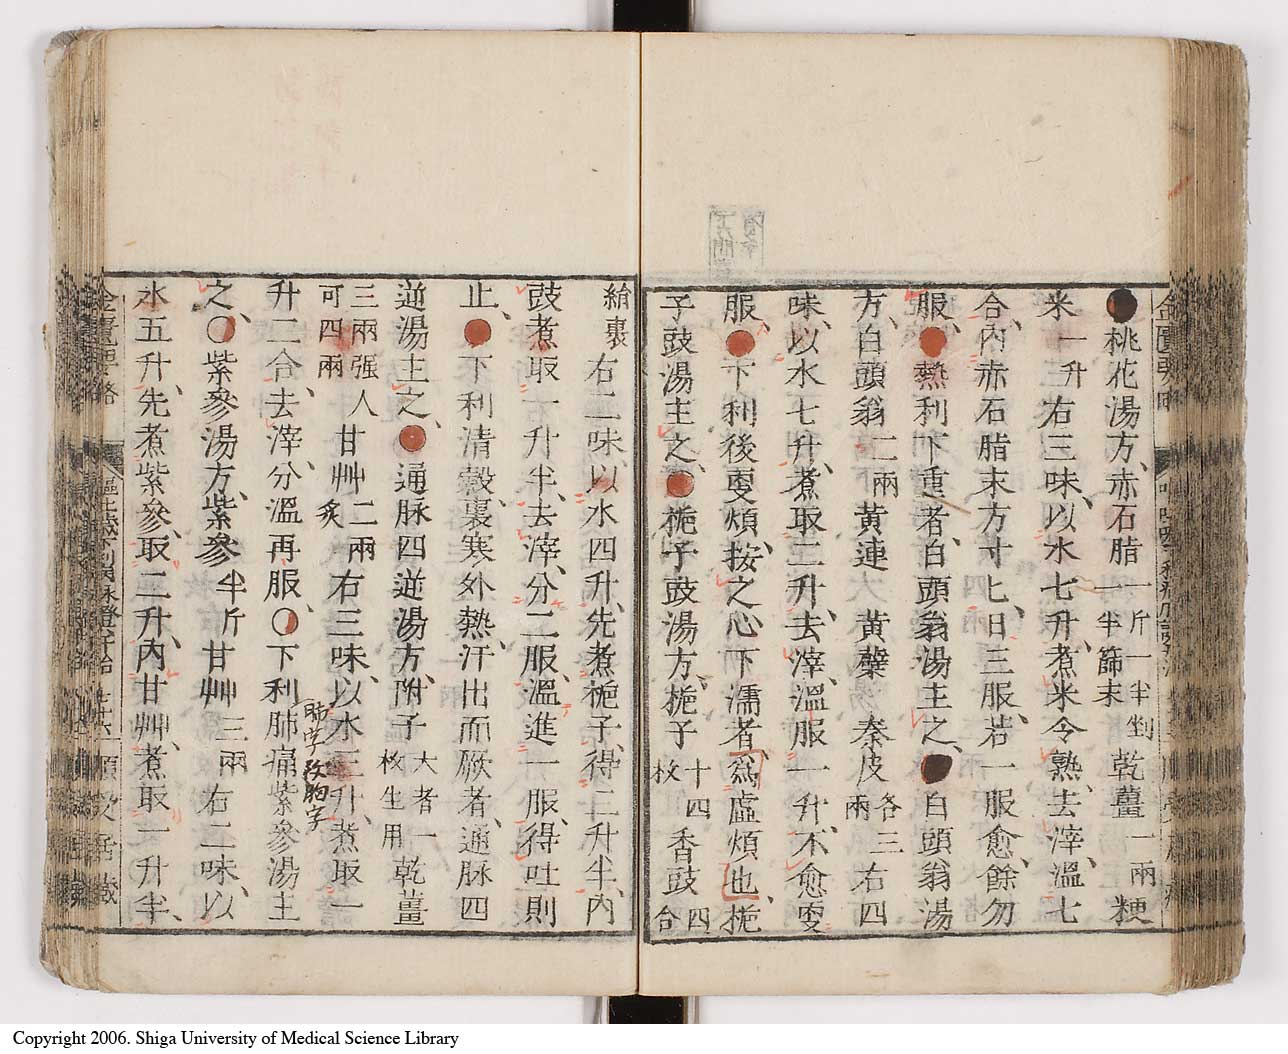 ●桃花湯方、赤石脂一斤一半剉一半篩末乾薑一兩粳
米一升右三味、以水七升、煮米令熟、去滓、溫七
合、內赤石脂末方寸匕、日三服、若一服愈、餘勿
服、●熱利下重者、白頭翁湯主之、●白頭翁湯
方、白頭翁二兩黃連 黃檗 秦皮各三兩右四
味、以水七升、煮取二升、去滓、溫服一升、不愈更
服、●下利後更煩、按之心下濡者、爲虛煩也、梔
子豉湯主之、●梔子豉湯方、梔子十四枚香豉四合
絹裹右二味、以水四升、先煮梔子、得二升半、內
豉煮取一升半、去滓、分二服、溫進一服、得吐則
止、●下利清穀、裏寒外熱、汗出而厥者、通脉四
逆湯主之、●通脉四逆湯方、附子大者一枚生用乾薑
三兩强人可四兩甘艸二兩炙右三味、以水三升、煮取一
升二合、去滓、分溫再服、○下利肺痛、紫參湯主
肺学改胸字
之、○紫參湯方、紫參半斤甘艸三兩右二味、以
水五升、先煮紫參、取二升、內甘艸、煮取一升半、
金匱要略
Copyright 2006. Shiga University of Medical Science Library